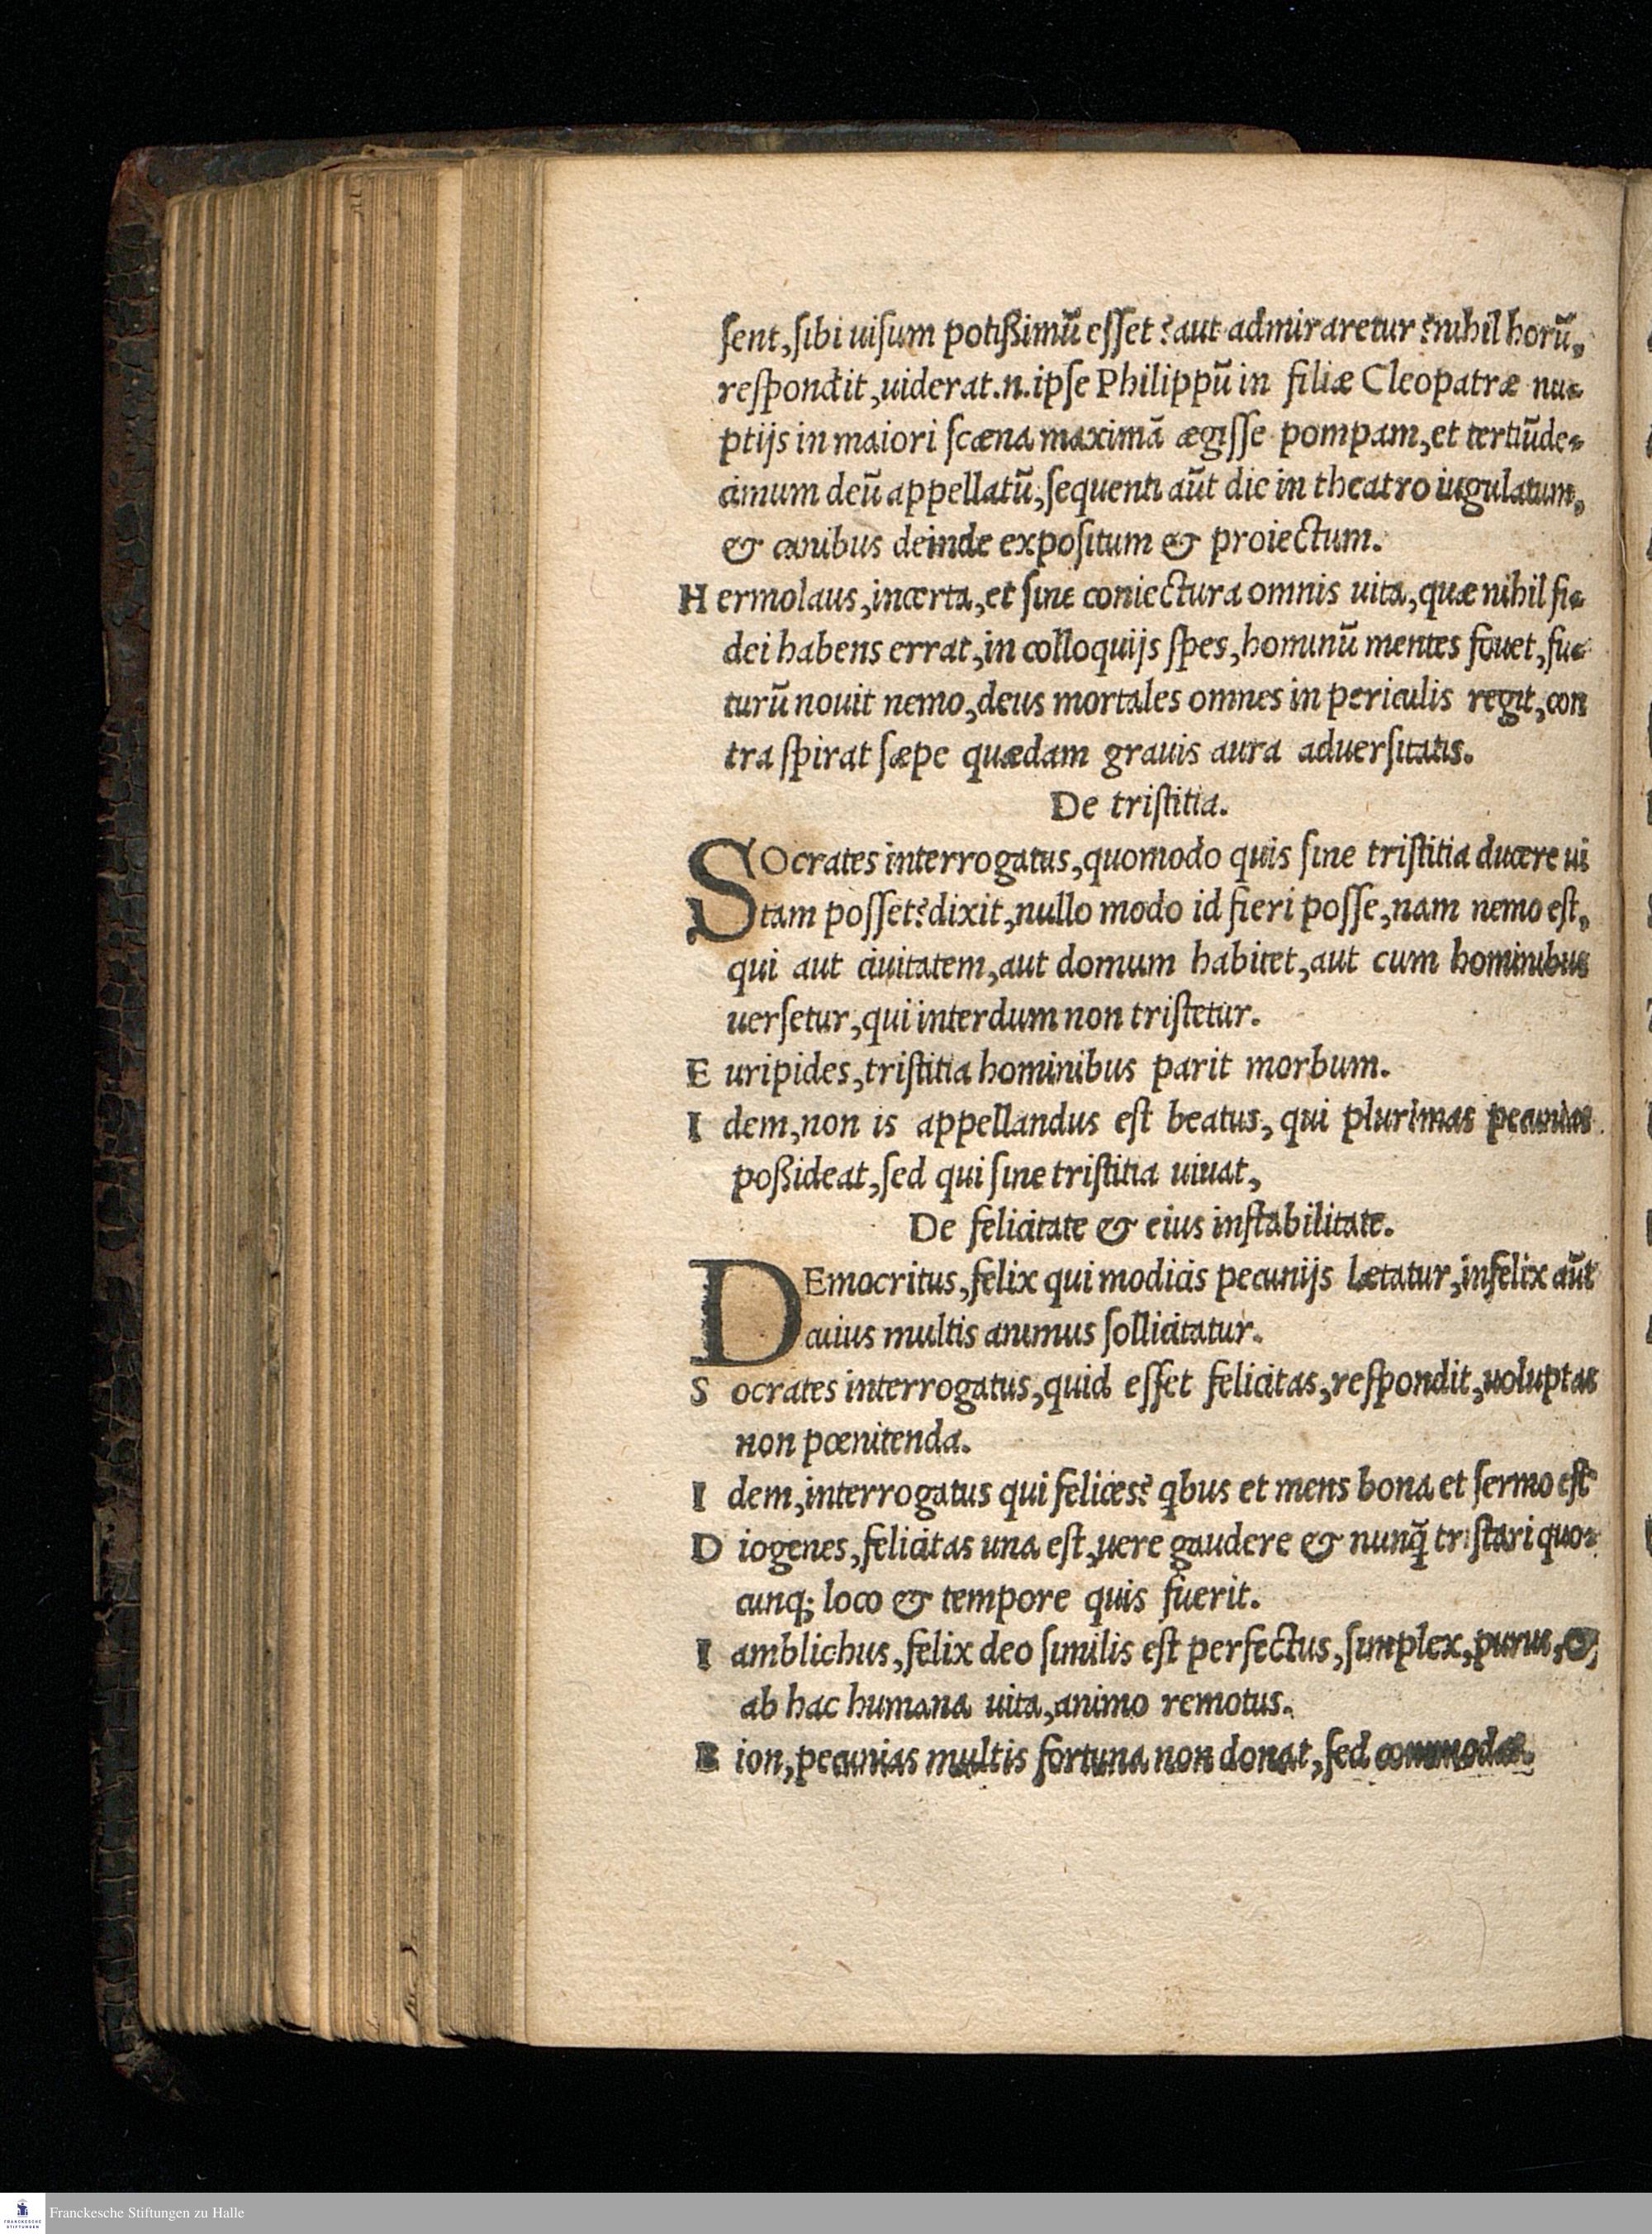 ſent, ſibi uiſum potißimũ eſſet? aut admiraretur? nihil horũ,
reſpondit, uiderat .n. ipſe Philippũ in filiæ Cleopatræ nu-
ptijs in maiori ſcæna maximã ægiſſe pompam, et tertiũde-
cimum deũ appellatũ, ſequenti aũt die in theatro iugulatum,
& canibus deinde expoſitum & proiectum.
H ermolaus, incerta, et ſine coniectura omnis uita, quæ nihil fi-
dei habens errat, in colloquijs ſpes, hominũ mentes fouet, fu-
turũ nouit nemo, deus mortales omnes in periculis regit, con
tra ſpirat ſæpe quædam grauis aura aduerſitatis.
De triſtitia.
SOcrates interrogatus, quomodo quis ſine triſtitia ducere ui
tam poſſet? dixit, nullo modo id fieri poſſe, nam nemo eſt,
qui aut ciuitatem, aut domum habitet, aut cum hominibus
uerſetur, qui interdum non triſtetur.
E uripides, triſtitia hominibus parit morbum.
I dem, non is appellandus eſt beatus, qui plurimas pecunias
poßideat, ſed qui ſine triſtitia uiuat,
De felicitate & eius inſtabilitate.
DEmocritus, felix qui modicis pecunijs lætatur, infelix aũt
cuius multis animus ſollicitatur.
S ocrates interrogatus, quid eſſet felicitas, reſpondit, uoluptas
non pœnitenda.
I dem, interrogatus qui felices? qbus et mens bona et ſermo eſt
D iogenes, felicitas una eſt, uere gaudere & nunq̃ triſtari quo-
cunq; loco & tempore quis fuerit.
I amblichus, felix deo ſimilis eſt perfectus, ſimplex, purus, &
ab hac humana uita, animo remotus.
B ion, pecunias multis fortuna non donat, ſed commodat.
Franckesche Stiftungen zu Halle
FRANCKESCHE
STIFTUNGEN